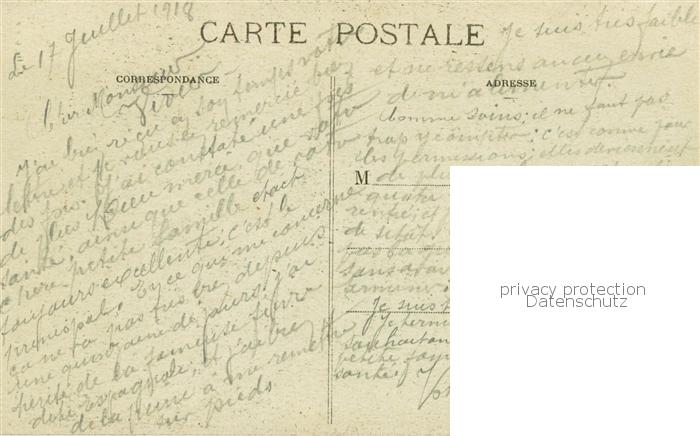 CARTE POSTALE
CORRESPONDANCE
ADRESSE
Le 17 Juillet 1918
Cher Monsieur
J'ai bien reçu en son temps votre
lettre et je vous en remercie bien
des fois. J'ai constaté une fois
de plus merci que votre
santé, ainsi que celle de votre
chère petite famille était
toujours excellente, c'est le
principal. En ce qui me concerne
ça ne va pas très bien depuis
une quinzaine de jours. J'ai
de la fameuse fièvre
dite Espagnole, et j'ai bien
de la peine à me remettre
sur pieds.
Je suis très faible
et ne ressens aucune envie
de m'alimenter.
Comme soins, il ne faut pas
trop y compter; c'est comme pour
des permissions, elles deviennent
de plu
M
quatre
de
sans
Je suis t
Je termi
souhaitant
petite fam
santé.
privacy protection
Datenschutz